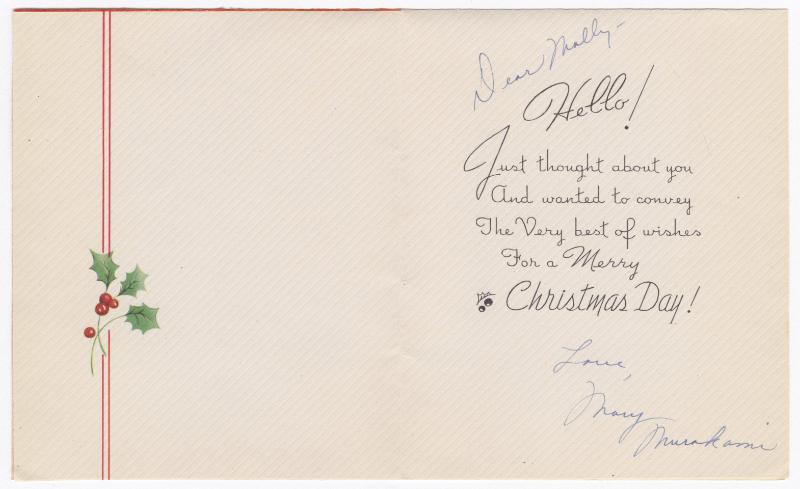 Dear Molly-
Hello!
Just thought about you
And wanted to convey
The Very best of wishes
For a Merry
Christmas Day!
Love,
Mary
Murakami